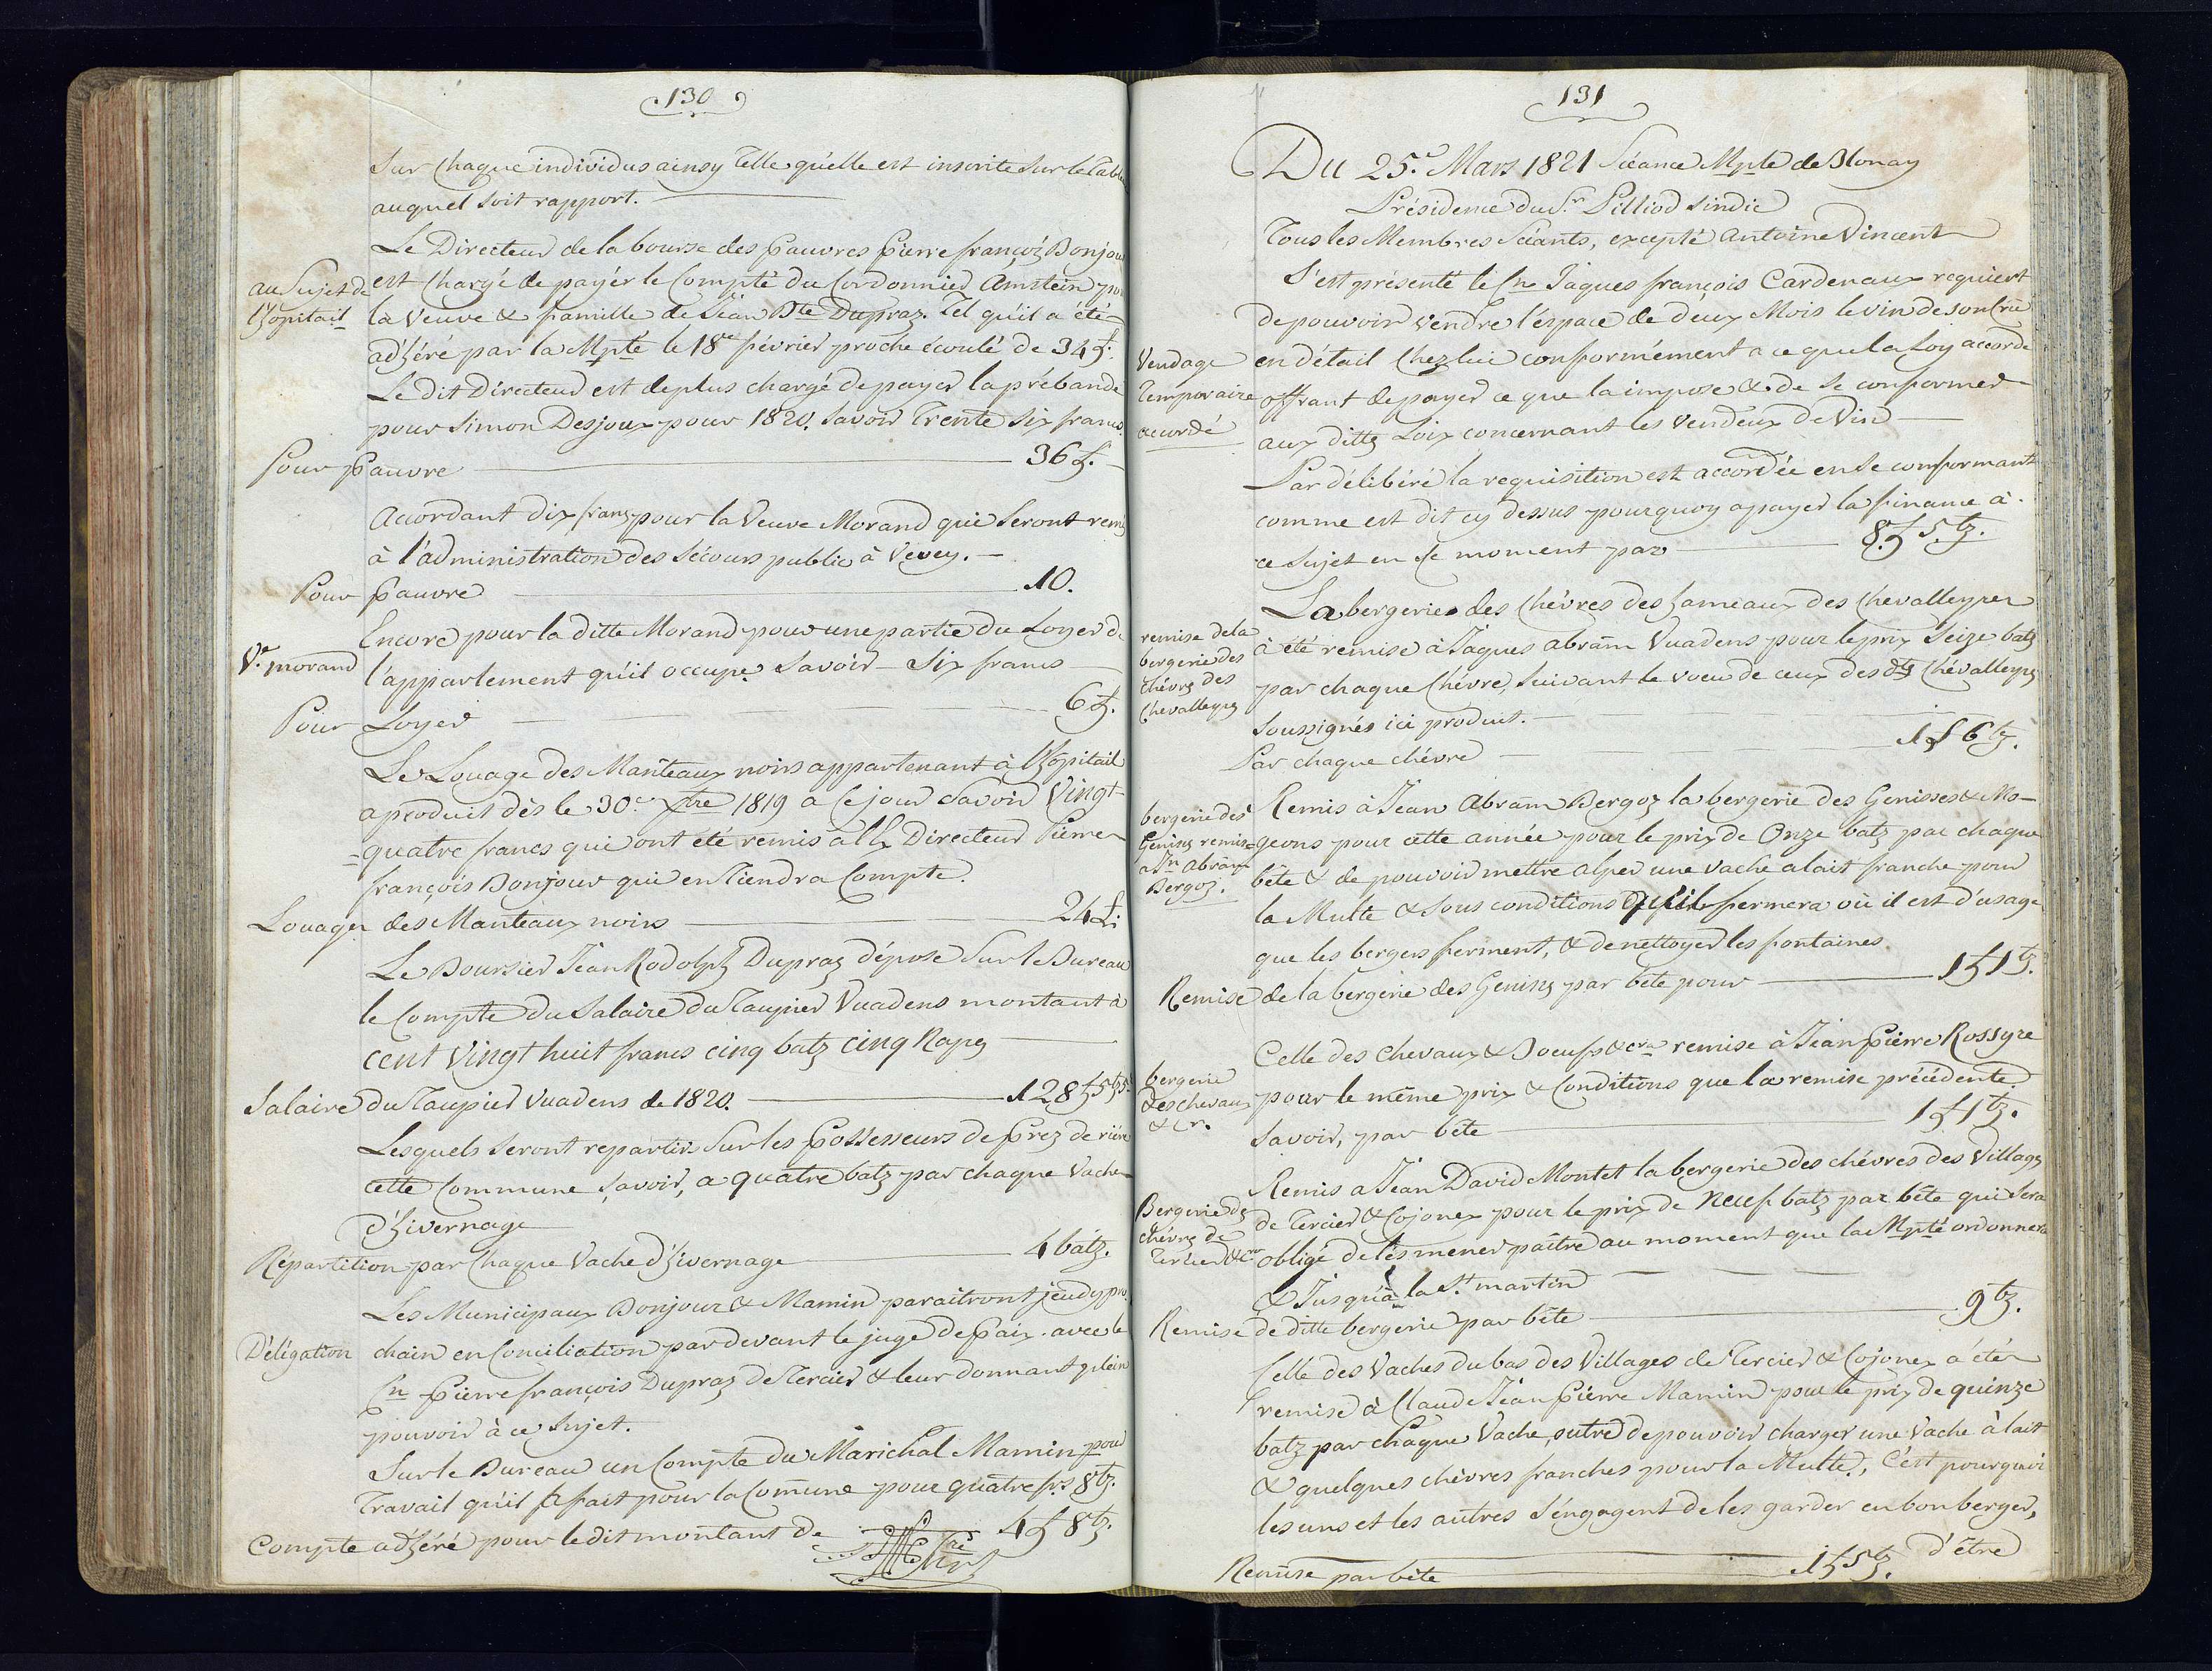 130
Sur chaque individus ainsy telle qu'elle est inscrite sur le Table
auquel soit rapport.
Le Directeur de la bourse des pauvres pierre françoiz Bonjour
au Sujet de
l'hôpitail
est chargé de payér le Compte du Cordonnier Amstein pour
la Veuve & famille de Jéan Bte Dupraz. Tel qu'il a été
adhéré par la Mpté le 18e février proche écoulé de 34 f.
Le dit Directeur est deplus chargé de payer la prébande
pour Simon Desjoux pour 1820. Savoir Trente Six francs.
Pour pauvre 36 f.
Accordant dix franz pour la Veuve Morand qui Seront remis
à l'administration des Sécours public à Vevey.
Pour pauvre 10.
Encore pour la ditte Morand pour une partie du Loyer de
Ve. morand
l'appartement qu'il occupe Savoir Six francs
Pour Loyer 6 f.
Le Louage des Manteaux noirs appartenant à l'hôpitail
a produit dès le 30e Xbre 1819 a ce jour Savoir Vingt-
=quatre francs qui ont été remis à Directeur Pierre
françois Bonjour qui en tiendra Compte.
Louage des Manteaux noirs 24 L.
Le Boursier Jéan Rodolph Dupraz dépose Sur le Bureau
le Compte du Salaire du Taupier Vuadens montant à
cent Vingt huit francs cinq batz cinq Rapes
Salaire du Taupier Vuadens de 1820. 128 f 5 bz 5.
Lesquels Seront repartir Sur les possesseurs de prez de riére
cette Commune Savoir, a quatre batz par chaque Vache
d'hivernage
Répartition par Chaque Vache d'hivernage 4 batz.
Les Municipaux Bonjour & Mamin paraitront jeudy pro
Délégation
chain en Conciliation par devant le juge de paix avec le
Cn pierre françois Dupraz de Tercier & leur donnant plein
pouvoir à ce Sujet.
Sur le Bureau un Compte du Marichal Mamin pour
Travail qu'il a fait pour la Comune pour quatre frs 8 bz.
Compte adhéré pour le dit montant de 4 f 8 bz.
131
Du 25e. Mars 1821 Séance Mple de Blonay
Présidence du Sr. Pilliod Sindic
Tous les Membres Séants, excepté Antoine Vincent
S'est présenté le Cn Jaques françois Cardenaux requiert
de pouvoir vendre l'éspace de deux Mois le vin de son cru
Vendage
Temporaire
accordé
en détail Chez lui conformément a ce que la Loy accorde
offrant de payer ce que la impose & de Se conformer
aux dittes Loix concernant les Vendeux de Vin
Par délibéré la requisition est accordée en Se conformant
comme est dit cy dessus pourquoy a payer la finance à
ce Sujet en Se moment par 8 f 5 bz.
La bergerie des Chévres des hameaux des Chevalleyres
remise de la
bergerie des
chévres des
Chevalleyres
à été remise à Jaques abram Vuadens pour le prix Seize batz
par chaque Chévre, Suivant le voeu de ceux des dts Chévalleyres
Soussignés ici produit.
Par chaque chévre 1 f 6 bz.
Remis à Jean Abram Bergoz la bergerie des Genisses & Mo-
bergerie des
Genises remis
a Jn abram
Bergoz.
=geons pour cette année pour le prix de Onze batz par chaque
bête & de pouvoir mettre alper une vache a lait franche pour
la Multe & Sous conditions qu'il fermera où il est d'usage
que les bergers ferment, & de nettoyer les fontaines
Remise de la bergerie des Genises par bête pour 1 f 1 bz.
Celle des chevaux & Boeufs &cra remise à Jéan pierre Rossyre
bergerie
des chevaux
& Cr.
pour le même prix & Conditions que la remise précédente.
Savoir, par bête 1 f 1 bz.
Remis a Jéan David Montet la bergerie des chévres des Villages
Bergerie des
chévres de
Tercier &cra
de Tercier & Cojonex pour le prix de neuf batz par bête qui Sera
obligé de lés mener paître au moment que la Mpté ordonnera
& Jusqu'à la St. martin
Remise de ditte bergerie par bête 9 bz.
Celle des Vaches du bas des Villages de Tercier & Cojonex a été
remise à Claude Jéan pierre Mamin pour le prix de quinze
batz par chaque Vache, outre de pouvoir charger une Vache à lait
& quelques chévres franches pour la Multe, C'ést pourquoi
les uns et les autres S'éngagent de les garder en bon berger,
d'être
Remise par bête 1 f 5 bz.